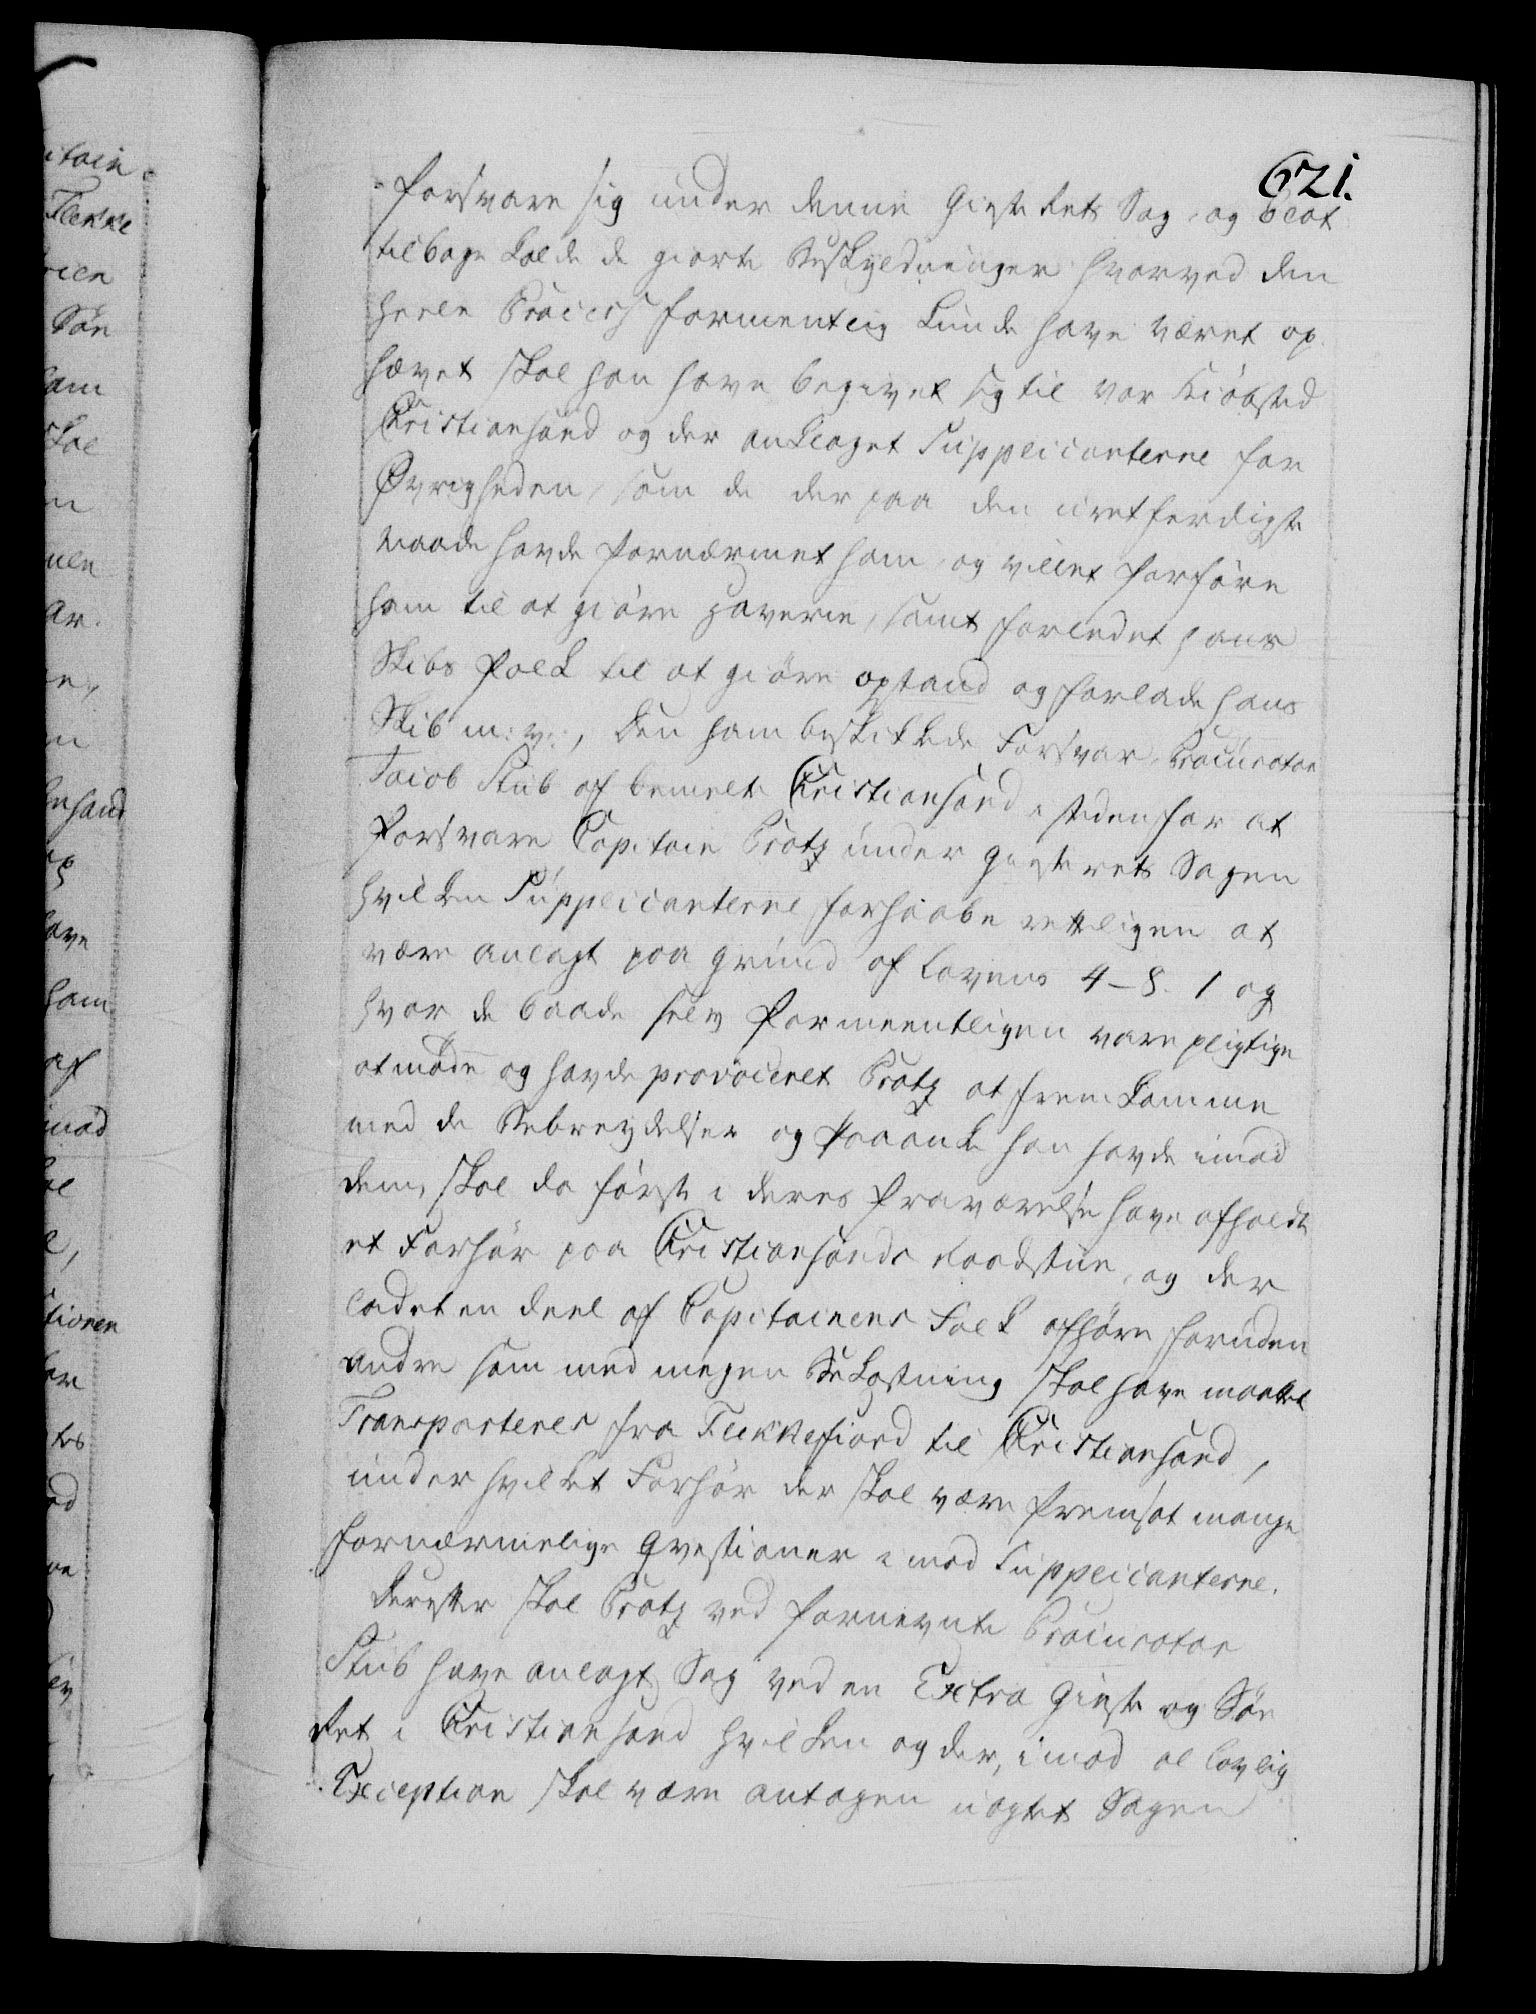 621.
forsvare sig under denne Giæste Rets Sag, og blot
tilbage kalde de giorte Beskyldninger hvorved den
heele Process formentlig kunde have været op
hævet skal han have begivet sig til vor Kiøbsted
Christiansand og der anklaget Supplicanterne for
Øvrigheden, som de der paa den uretferdigste
maade havde fornærmet ham, og villet forføre
ham til at giøre Haverie, samt forledet hans
Skibs Folk til at giøre opstand og forlade hans
Skib m: v:, den ham beskikkede Forsvar, Procurator
Jacob Stub af bemelte Christiansand i steden for at
forsvare Capitain Protz under Giesterets Sagen
hvilken Supplicanterne forhaabe rettelligen at
være anlagt paa grund af Lovens 4-8-1 og
hvor de baade selv formeentligen vare pligtige
at møde og havde provoceret Protz at fremkomme
med de Bebreydelser og Paaanke han havde imod
dem, skal da først i deres fraværelse have afholdt
et Forhør paa Christiansands Raadstue, og der
ladet en deel af Capitainens Folk afhøre foruden
andre som med megen Bekostning skal have maattet
Transporteres fra Flekkefiord til Christiansand,
under hvilket Forhør der skal være fremsat mange
fornærmelige Qvestioner imod Supplicanterne.
Derefter skal Protz ved fornevnte Procurator
Stub have anlagt Sag ved en Extra Gieste og Søe
Ret i Christiansand hvilken og der, imod al lovlig
Exception skal være antagen uagtet Sagen